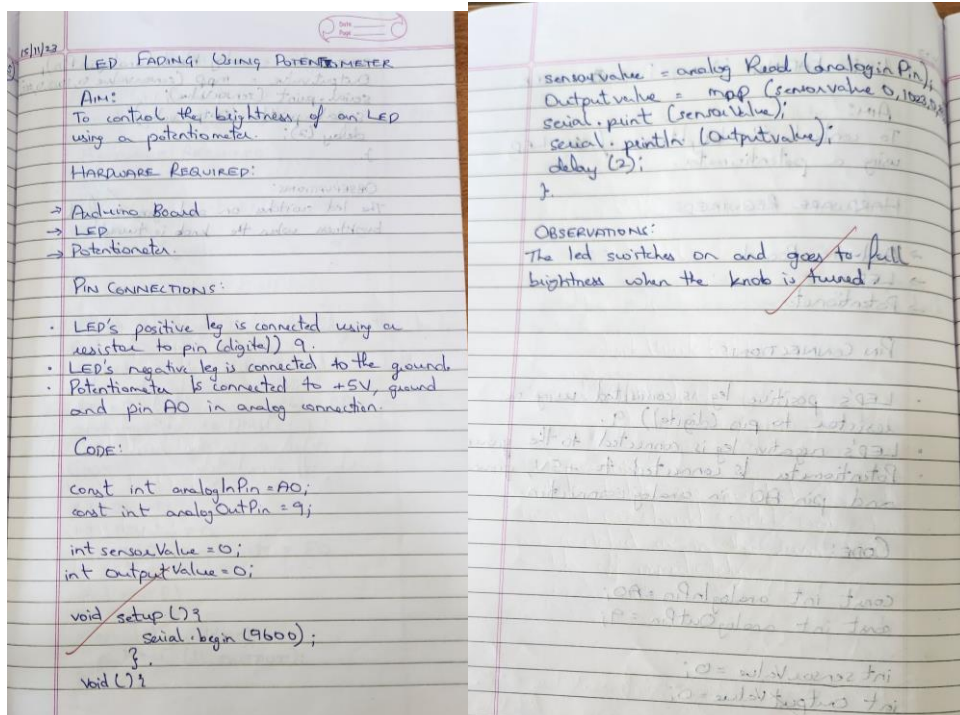 Date
Page
15/11/23
LED FADING USING POTENTIOMETER
AIM:
To control the brightness of an LED
using a potentiometer.
HARDWARE REQUIRED:
→ Arduino Board
→ LED
→ Potentiometer.
PIN CONNECTIONS:
· LED's positive leg is connected using a
resistor to pin (digital)) 9.
· LED's negative leg is connected to the ground.
· Potentiometer is connected to +5V, ground
and pin A0 in analog connection.
CODE:
const int analogInPin = A0;
const int analogOutPin = 9;
int sensorValue = 0;
int outputValue = 0;
void setup () {
serial.begin (9600);
}.
void () {
sensorvalue = analog Read (analoginPin);
Outputvalue = map (sensorvalue 0, 1023, 0,
serial.print (sensorValue);
serial.println (Outputvalue);
delay (2);
}.
OBSERVATIONS:
The led switches on and goes to full
brightness when the knob is turned.